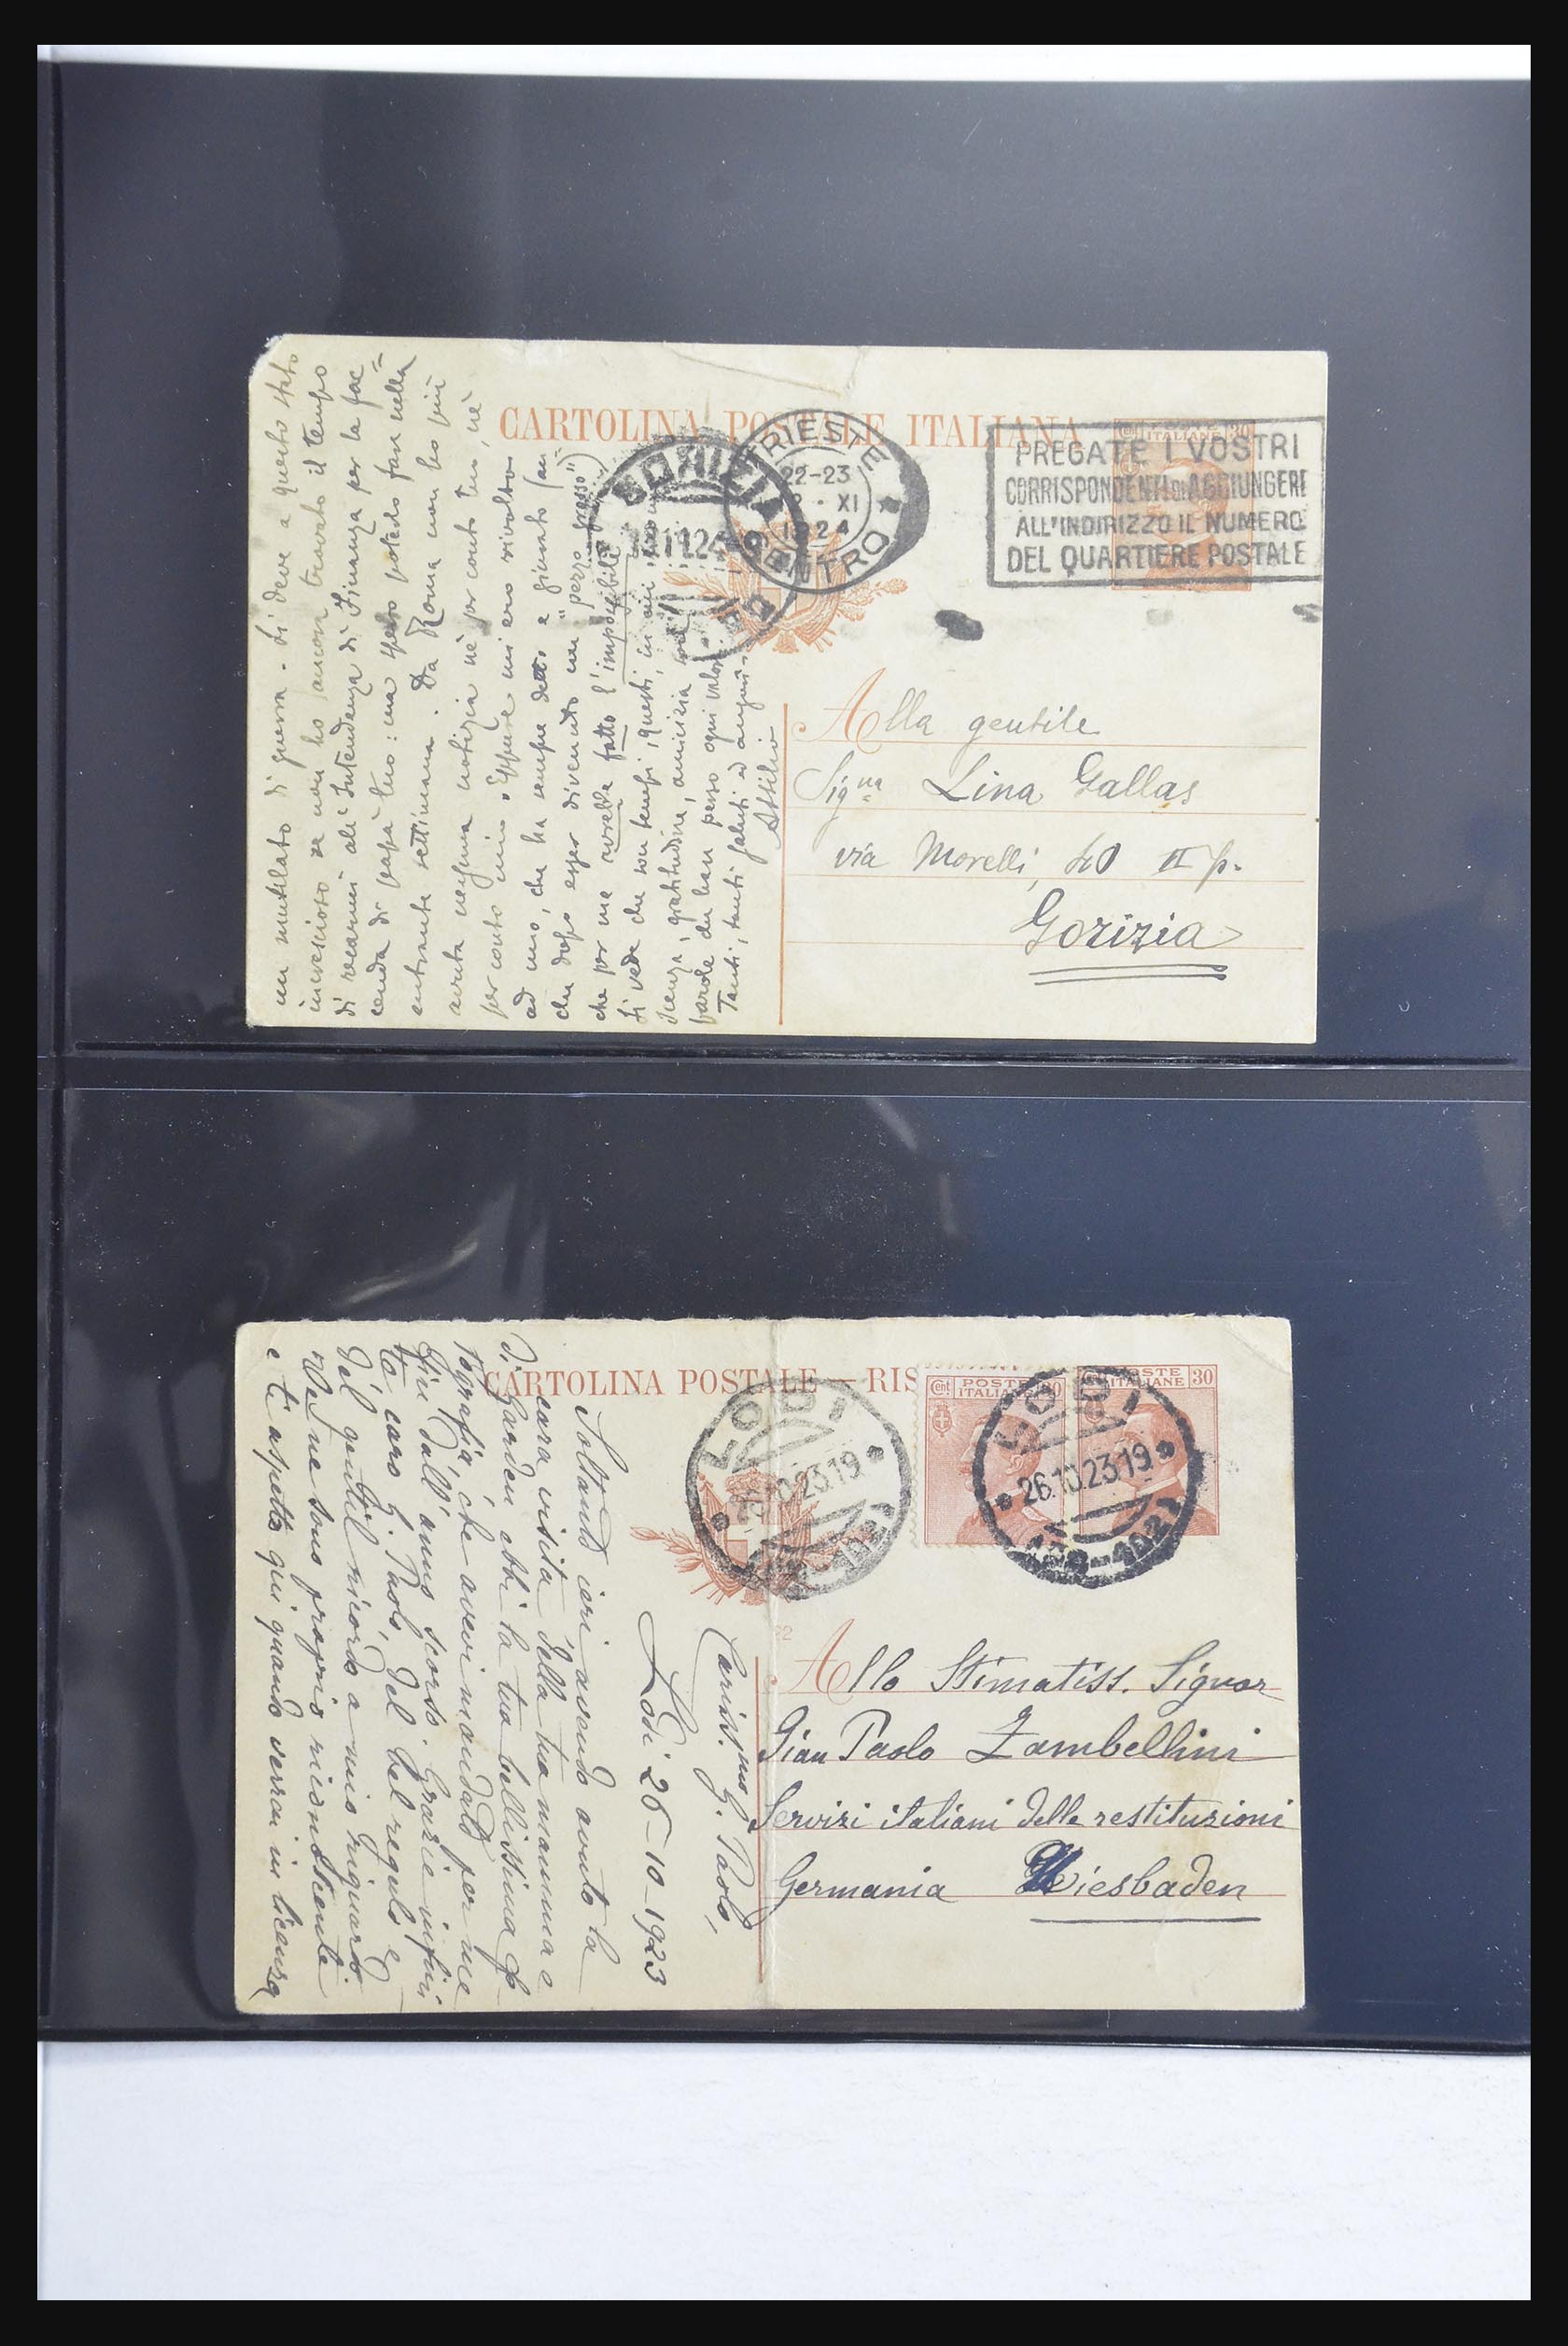 CARTOLINA POSTALE ITALIANA
TRIESTE
22-23
XI
1924
CENTRO
GORIZIA
PREGATE I VOSTRI
CORRISPONDENTI DI AGGIUNGERE
ALL'INDIRIZZO IL NUMERO
DEL QUARTIERE POSTALE
Alla gentile
Sig.na Lina Gallas
via Morelli, 40 II p.
Gorizia
un mutilato di guerra. Si deve a questo
increscioso se non ho ancora trovato il tempo
di recarmi all'Intendenza di Finanza per la fac=
cenda di papà tuo: ma spero poterlo fare nella
entrante settimana. Da Roma non ho più
avuta nessuna notizia nè per conto tuo, nè
per conto mio. Eppure mi ero rivolto
ad uno, che ha sempre detto e giurato
che dopo esser divenuto un "pezzo grosso")
che per me avrebbe fatto l'impossibile
Si vede che son tempi, questi, in cui
scenza, gratitudine, amicizia son
parole che han perso ogni valore.
Tanti, tanti saluti ed auguri
Attilio
CARTOLINA POSTALE — RIS
Cent. POSTE ITALIANE 30
POSTE ITALIANE 30
LODI
23.19
LODI
26.10.23.19
22
Allo Stimatiss. Signor
Gian Paolo Zambellini
Servizi italiani delle restituzioni
Germania Wiesbaden
Cariss.mo G. Paolo,
Lodi 26-10-1923
Soltanto ieri avendo avuto la
cara visita della tua mamma e
di Garden ebbi la tua bellissima fo
tografia che avevi mandato per me
fin dall'anno scorso. Grazie infini
te caro G. Paolo, del bel regalo e
del gentil ricordo a mio riguardo
Ve ne sono proprio riconoscente
e ti aspetto qui quando verrai in licenza